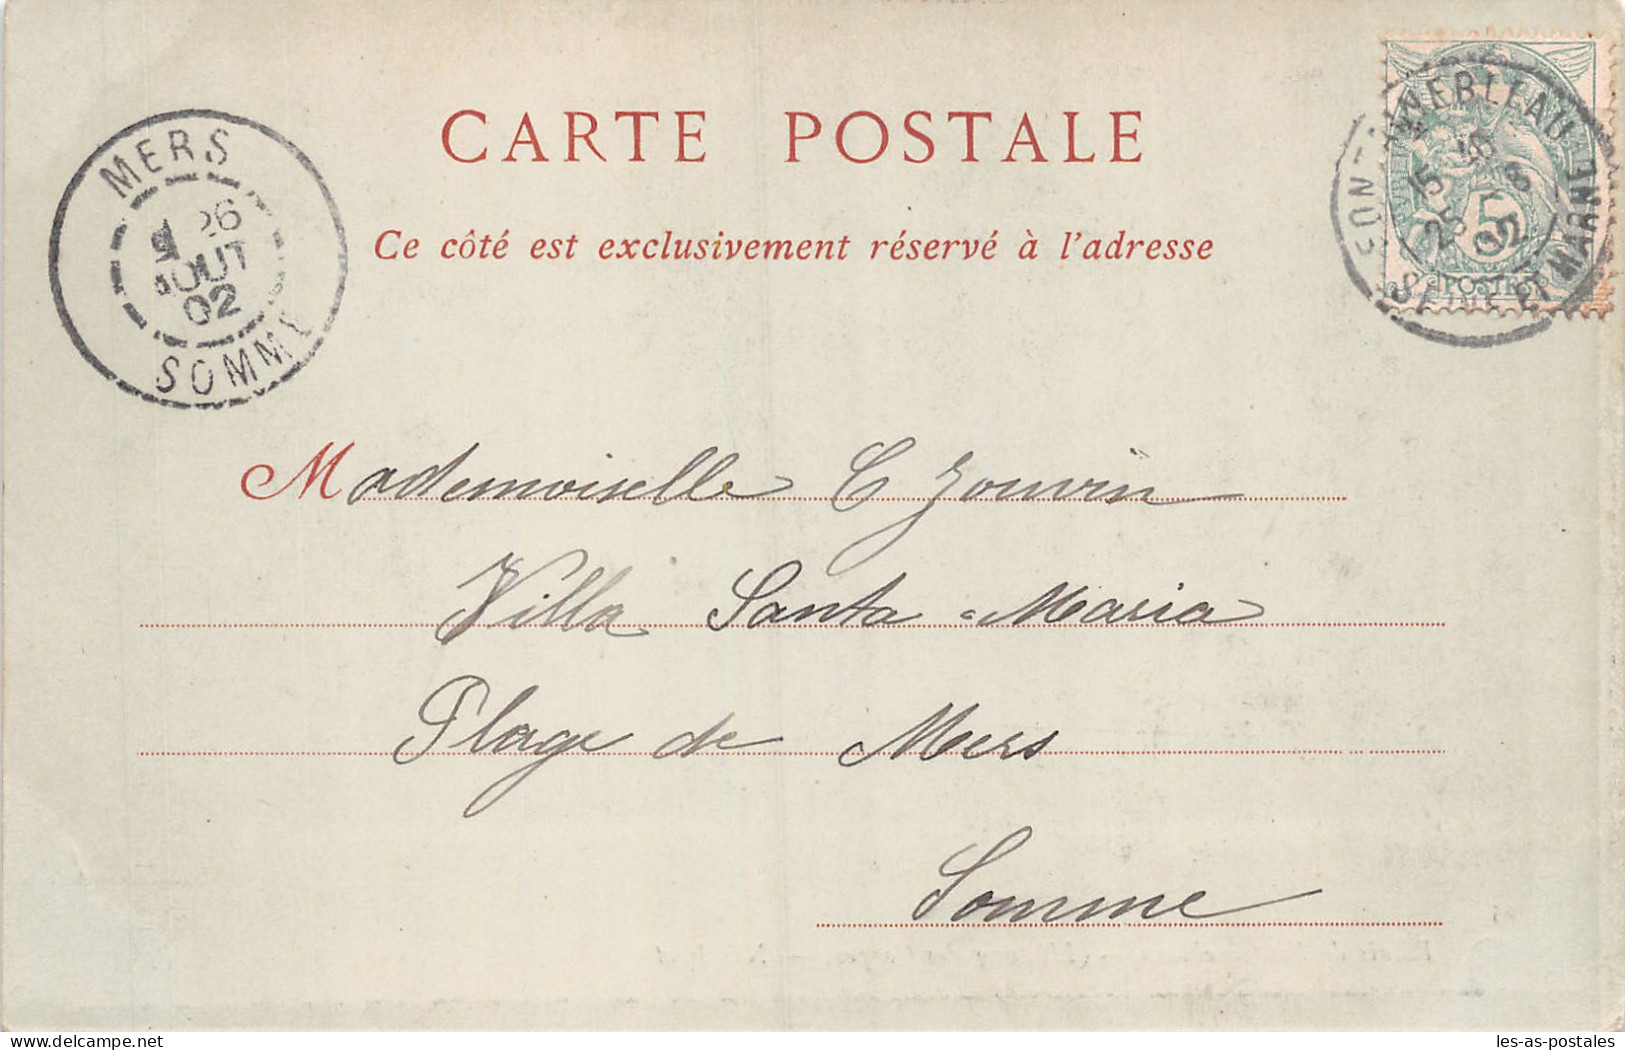 CARTE POSTALE
Ce côté est exclusivement réservé à l'adresse
MERS
26
AOUT
02
SOMME
FONTAINEBLEAU
15
25 8
02
SEINE ET MARNE
5
POSTES
Mademoiselle C Jouvin
Villa Santa-Maria
Plage de Mers
Somme
les-as-postales